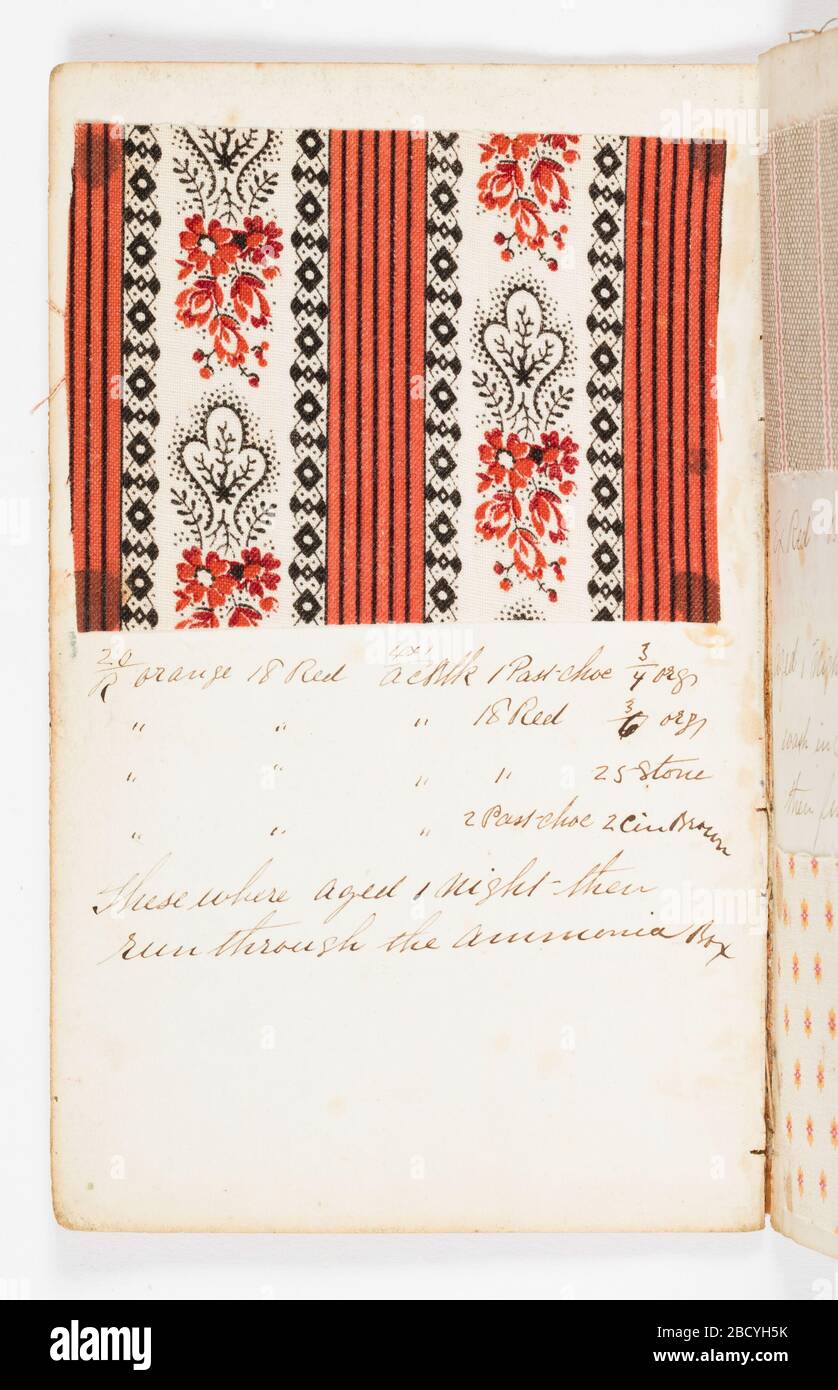 20/R orange 18 Red acBlk 1 Past-choc 3/4 org
" " " 18 Red 3/6 org
" " " " 25 Stone
" " " 2 Past-choc 2 Cin Brown
These where aged 1 night - then
run through the ammonia Box
Red
aged 1 night
wash in
then
alamy
Image ID: 2BCYH5K
www.alamy.com